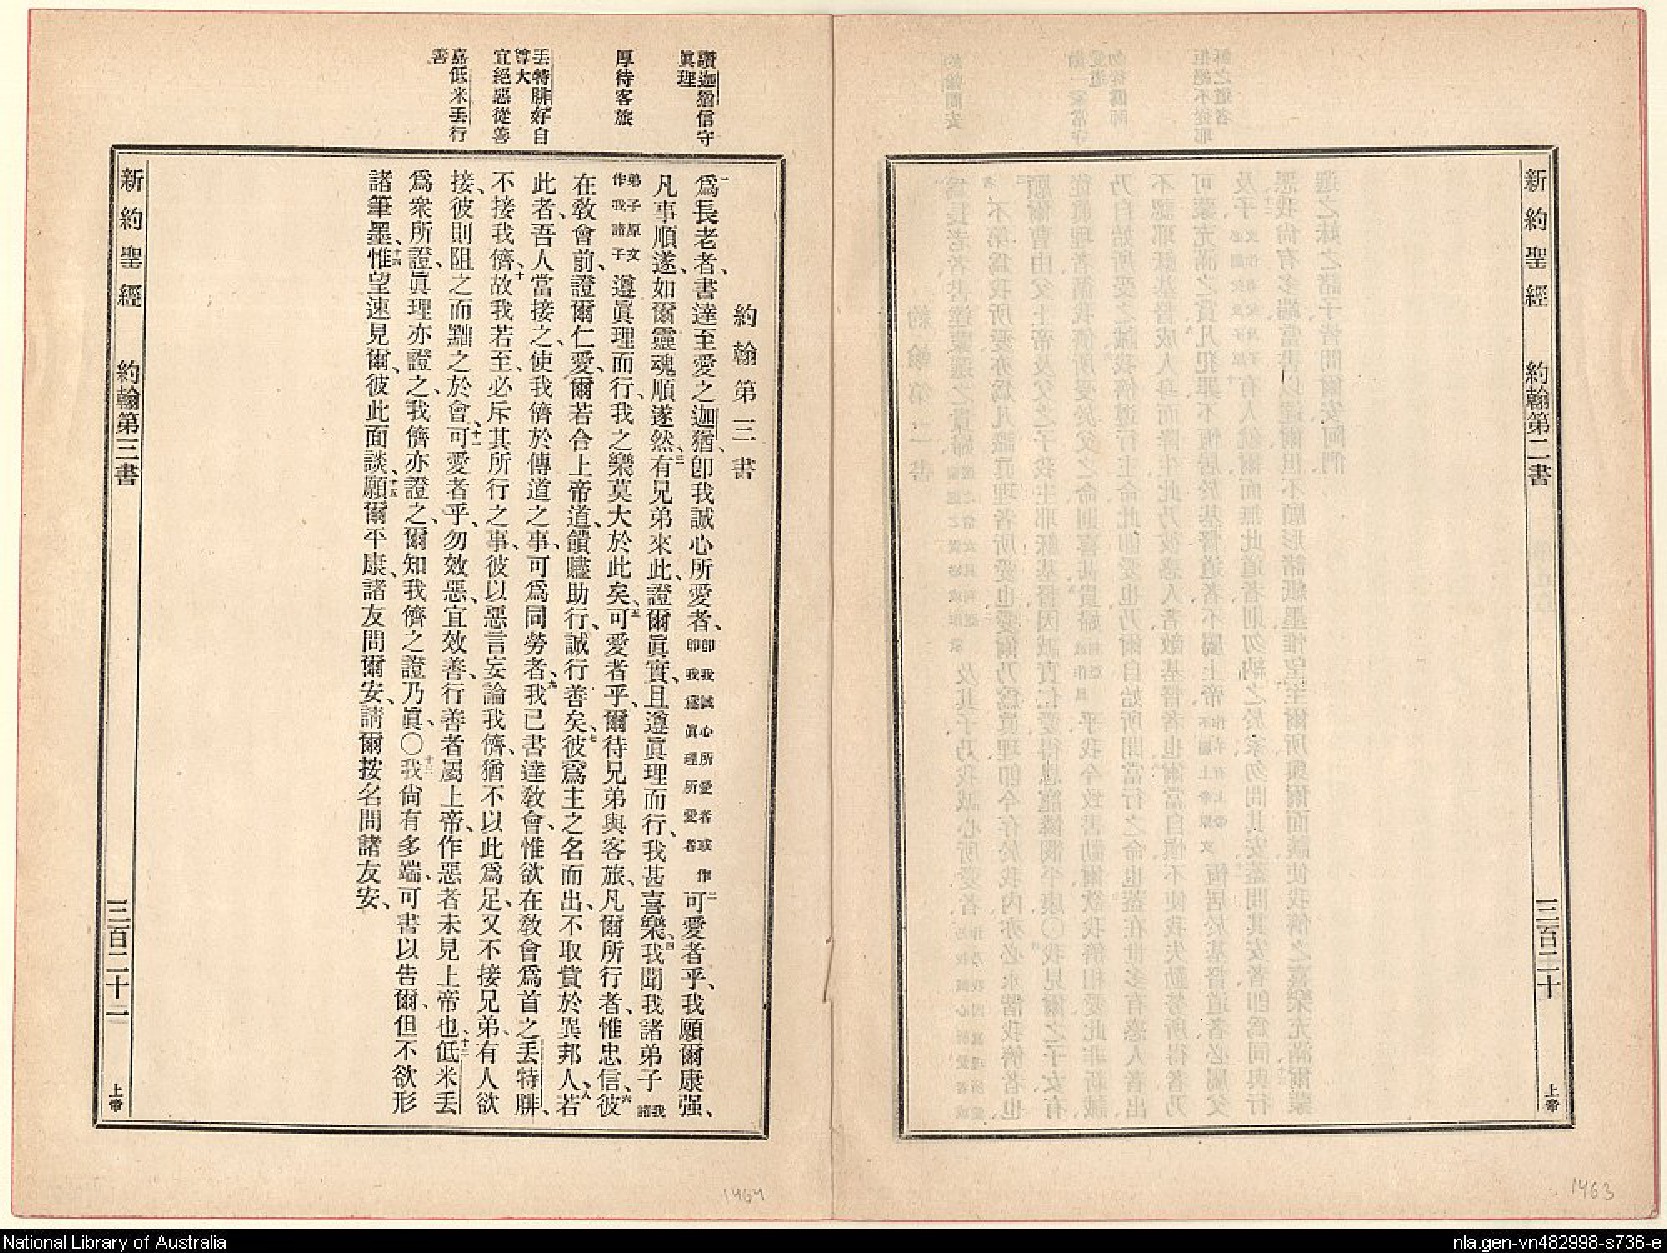 新約聖經 約翰第二書 三百二十 上帝
1463
讚迦猶信守
眞理
厚待客旅
丟特腓好自
尊大
宜絕惡從善
嘉低米丟行
善
約翰第三書
一爲長老者、書達至愛之迦猶、卽我誠心所愛者、卽我誠心所愛者或作卽我爲眞理所愛者二可愛者乎、我願爾康强、
凡事順遂、如爾靈魂順遂然、三有兄弟來此、證爾眞實、且遵眞理而行、我甚喜樂、四我聞我諸弟子我諸
弟子原文作我諸子遵眞理而行、我之樂莫大於此矣、五可愛者乎、爾待兄弟與客旅、凡爾所行者、惟忠信、六彼
在敎會前、證爾仁愛、爾若合上帝道、饋贐助行、誠行善矣、七彼爲主之名而出、不取貲於異邦人、八若
此者、吾人當接之、使我儕於傳道之事、可爲同勞者、九我已書達敎會、惟欲在敎會爲首之丟特腓、
不接我儕、十故我若至、必斥其所行之事、彼以惡言妄論我儕、猶不以此爲足、又不接兄弟、有人欲
接、彼則阻之、而黜之於會、十一可愛者乎、勿效惡、宜效善、行善者屬上帝、作惡者未見上帝也、十二低米丟
爲衆所證、眞理亦證之、我儕亦證之、爾知我儕之證乃眞、〇十三我尙有多端、可書以告爾、但不欲形
諸筆墨、十四惟望速見爾、彼此面談、十五願爾平康、諸友問爾安、請爾按名問諸友安、
新約聖經 約翰第三書 三百二十一 上帝
1464
National Library of Australia
nla.gen-vn482998-s736-e